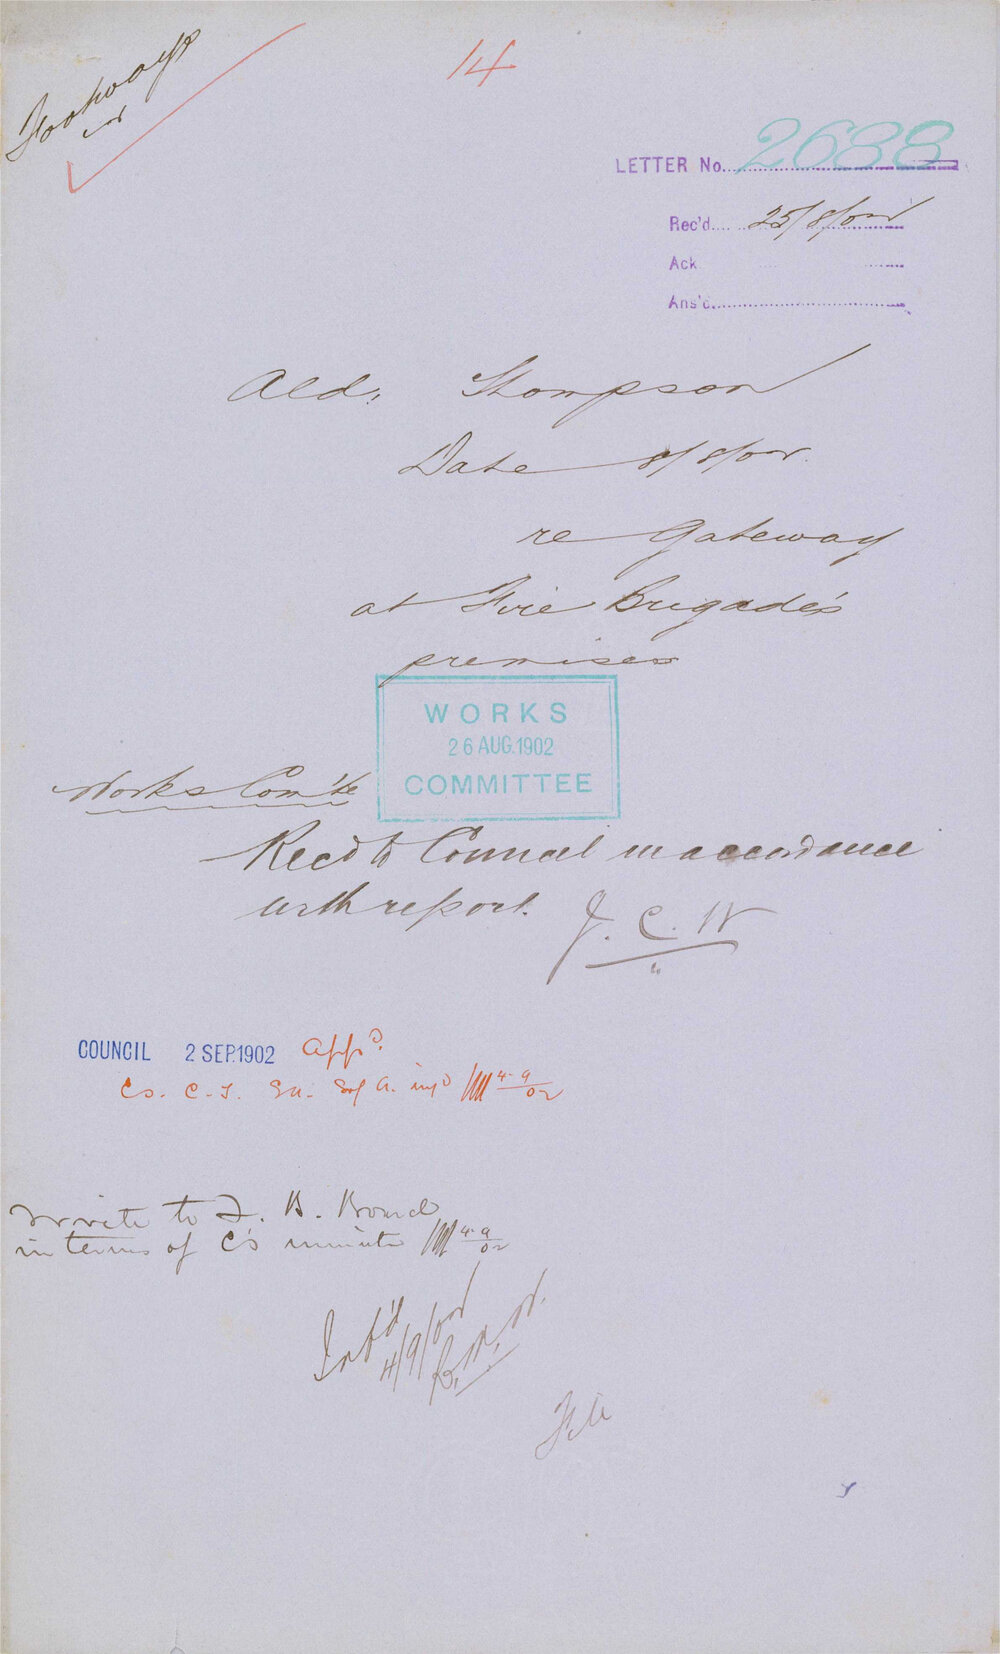 Footways
14
LETTER No. 2688
Rec'd 25/8/02
Ack
Ans'd.
Ald. Thompson
Date 8/8/02.
re Gateway
at Fire Brigade's
premises
WORKS
26 AUG.1902
COMMITTEE
Works Com'te
Rec'd to Council in accordance
with report. J. C. W
COUNCIL 2 SEP.1902 App'd.
Cs. C. S. 4-9/02
Write to F. B. Board
in terms of C's minute 4-9/02
4/9/02
File